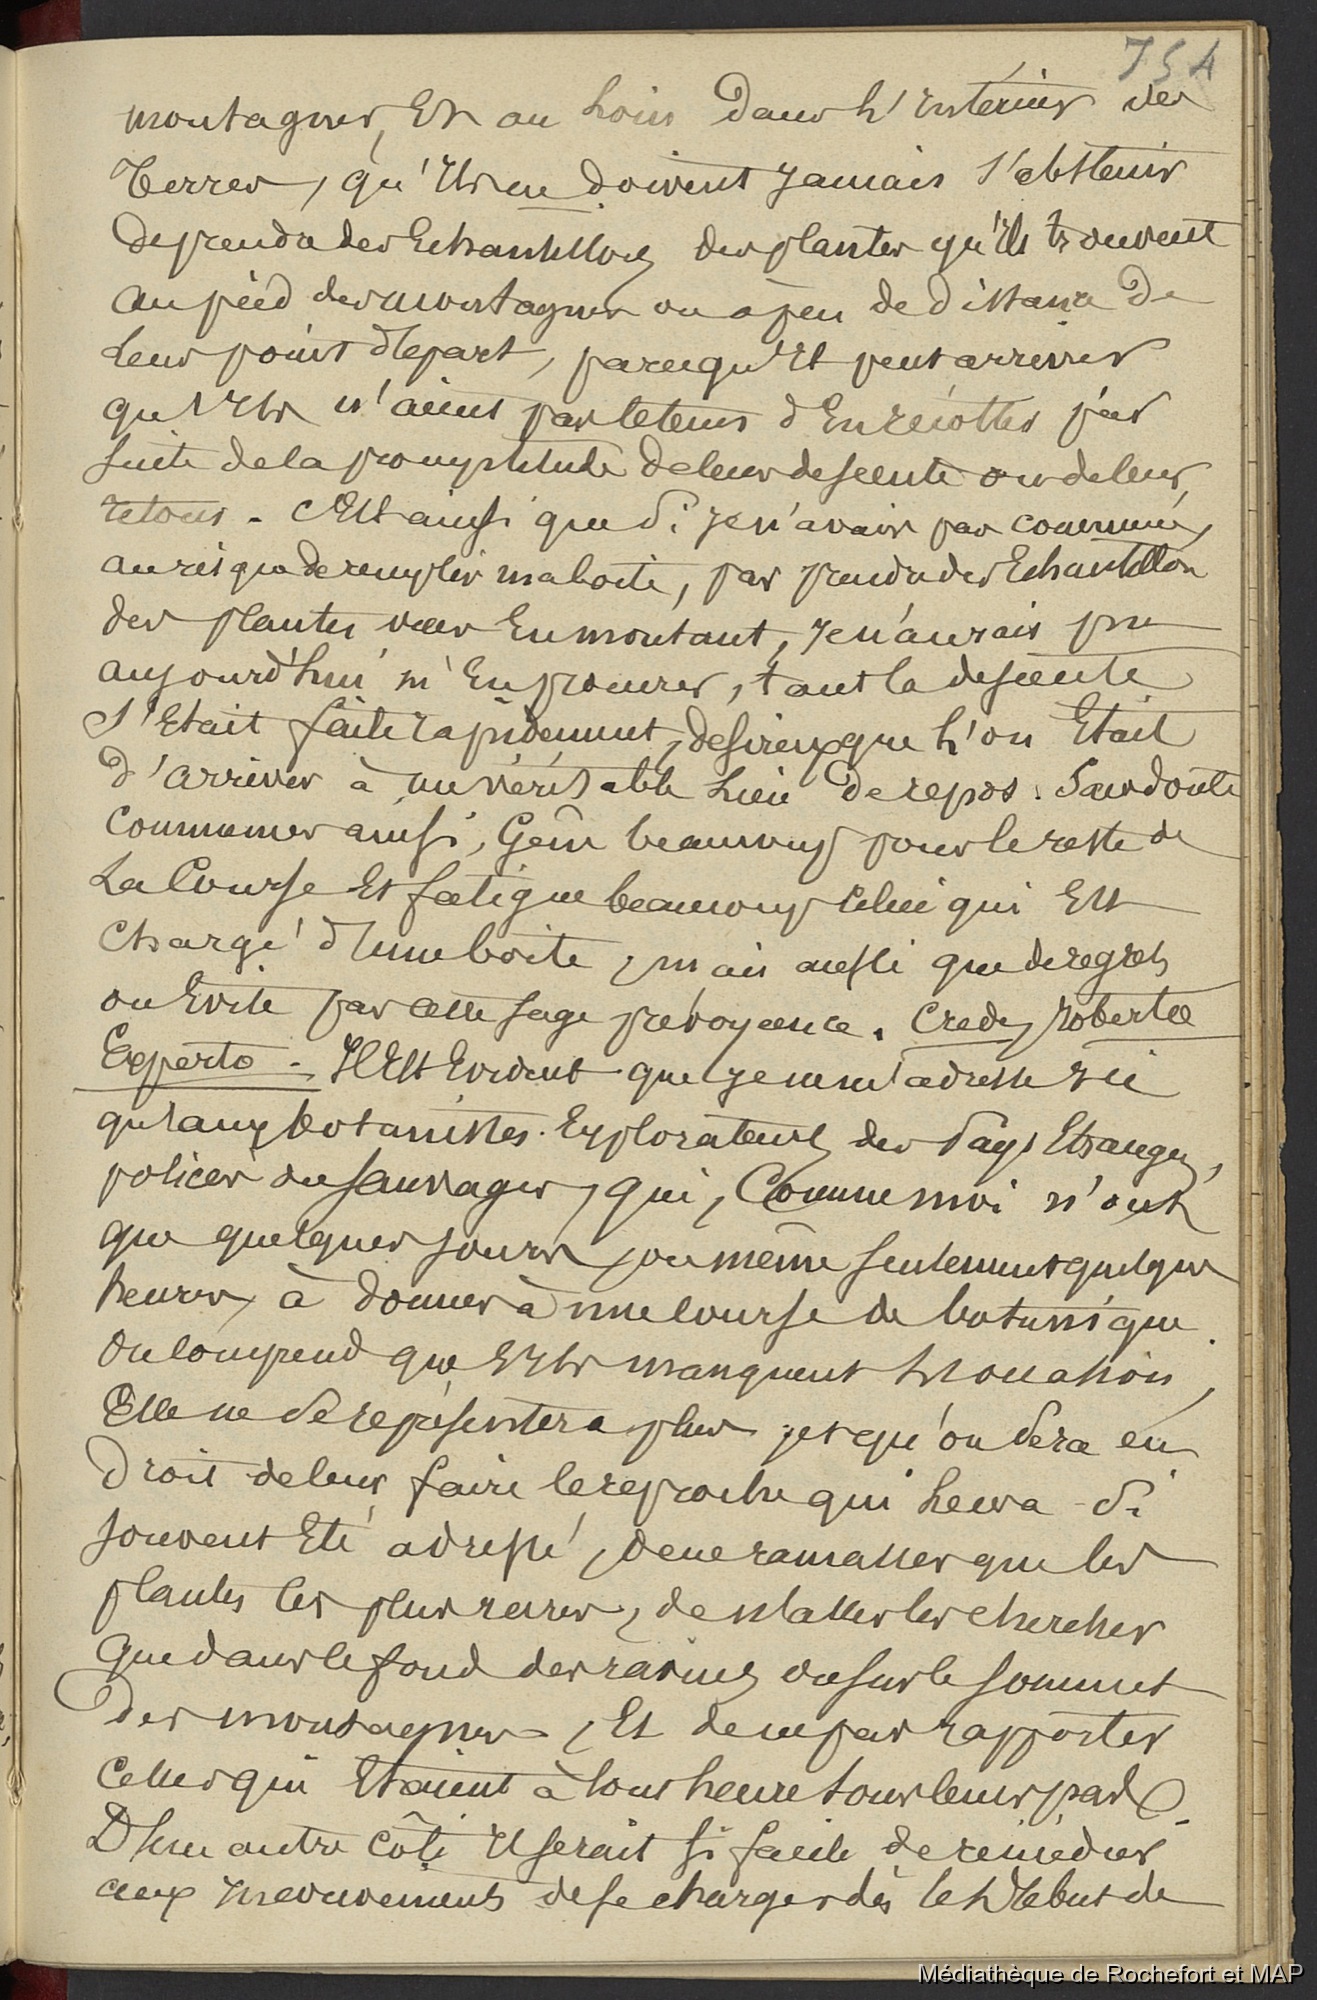 754
montagnes, Et au Loin Dans L'Intérieur des
Terres, qu'Ils ne doivent Jamais s'abstenir
De prendre des Echantillons des plantes qu'Ils trouvent
au pied des montagnes ou à peu de distance De
Leur point dEpart, parcequ'Il peut arriver
qu'Ils n'aient pas le tems d'En récolter par
suite de la promptitude De leur descente ou de leur
retour. C'Est ainsi que si Je n'avais pas commencé,
au risque de remplir ma boite, par prendre des Echantillon
des plantes vues En montant, Je n'aurais pu
aujourd'hui m'En procurer, tant la descente
S'Etait faite rapidement, desireux que L'on Etait
D'arriver à un véritable Lieu De repos. Sans doute
Commencer ainsi, Gêne beaucoup pour le reste de
La Course Et fatigue beaucoup celui qui Est
Chargé d'Une boite, mais aussi que de regrets
on Evite par cette sage prévoyance. Crede Roberto
Experto. Il Est Evident que Je ne m'adresse Ici
qu'aux botanistes Explorateurs des Pays Etrangers,
policés ou sauvages, qui, Comme moi n'ont
que quelques jours, ou même seulement quelques
heures, à donner à une course de botanique.
On comprend que s'Ils manquent L'Occasion,
Elle ne se représentera plus et qu'on sera en
Droit de leur faire le reproche qui Leur a si
souvent Eté adressé, de ne ramasser que les
plantes les plus rares, de n'aller les chercher
Que dans le fond des ravins ou sur le sommet
Des montagnes, Et de ne pas rapporter
Celles qui Etaient à tout heure sous leurs pas.
D'Un autre côté Il serait si facile de remédier
aux Inconvénients de se charger dès le Début de
Médiathèque de Rochefort et MAP